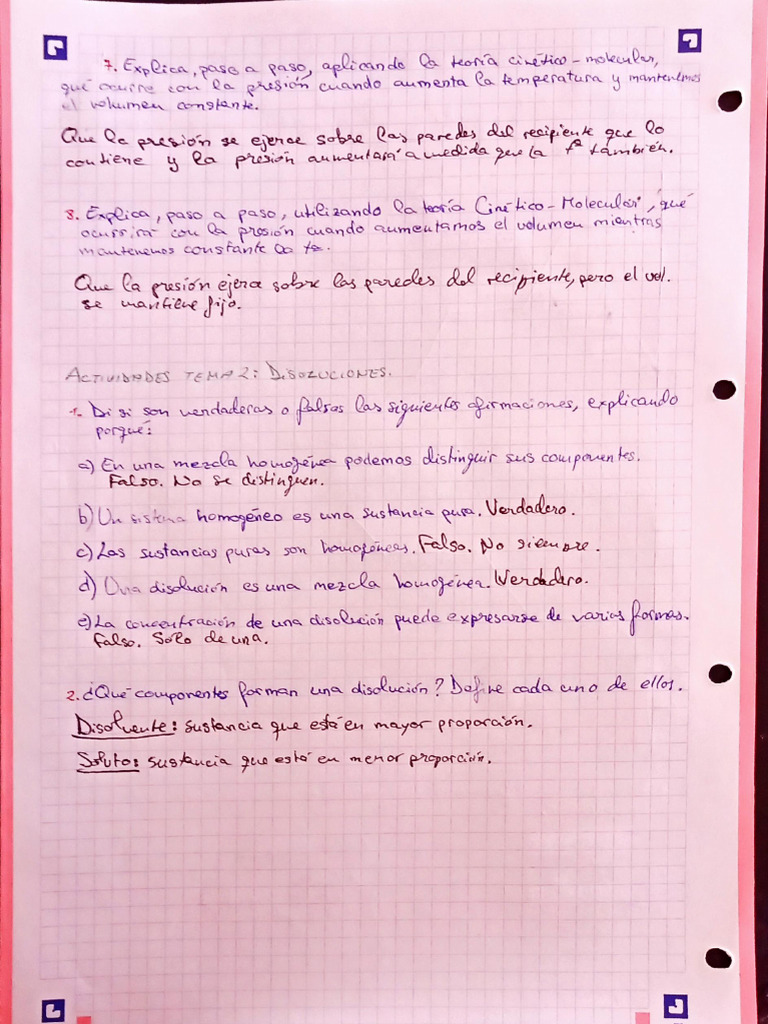 7. Explica, paso a paso, aplicando la teoría cinético-molecular,
qué ocurre con la presión cuando aumenta la temperatura y mantenemos
el volumen constante.
Que la presión se ejerce sobre las paredes del recipiente que lo
contiene y la presión aumentará a medida que la tª también.
8. Explica, paso a paso, utilizando la teoría Cinético-Molecular, qué
ocurrirá con la presión cuando aumentamos el volumen mientras
mantenemos constante la tª.
Que la presión ejerce sobre las paredes del recipiente, pero el vol.
se mantiene fijo.
ACTIVIDADES TEMA 2: DISOLUCIONES.
1. Di si son verdaderas o falsas las siguientes afirmaciones, explicando
porqué:
a) En una mezcla homogénea podemos distinguir sus componentes.
Falso. No se distinguen.
b) Un sistema homogéneo es una sustancia pura. Verdadero.
c) Las sustancias puras son homogéneas. Falso. No siempre.
d) Una disolución es una mezcla homogénea. Verdadero.
e) La concentración de una disolución puede expresarse de varias formas.
Falso. Solo de una.
2. ¿Qué componentes forman una disolución? Define cada uno de ellos.
Disolvente: sustancia que está en mayor proporción.
Soluto: sustancia que está en menor proporción.